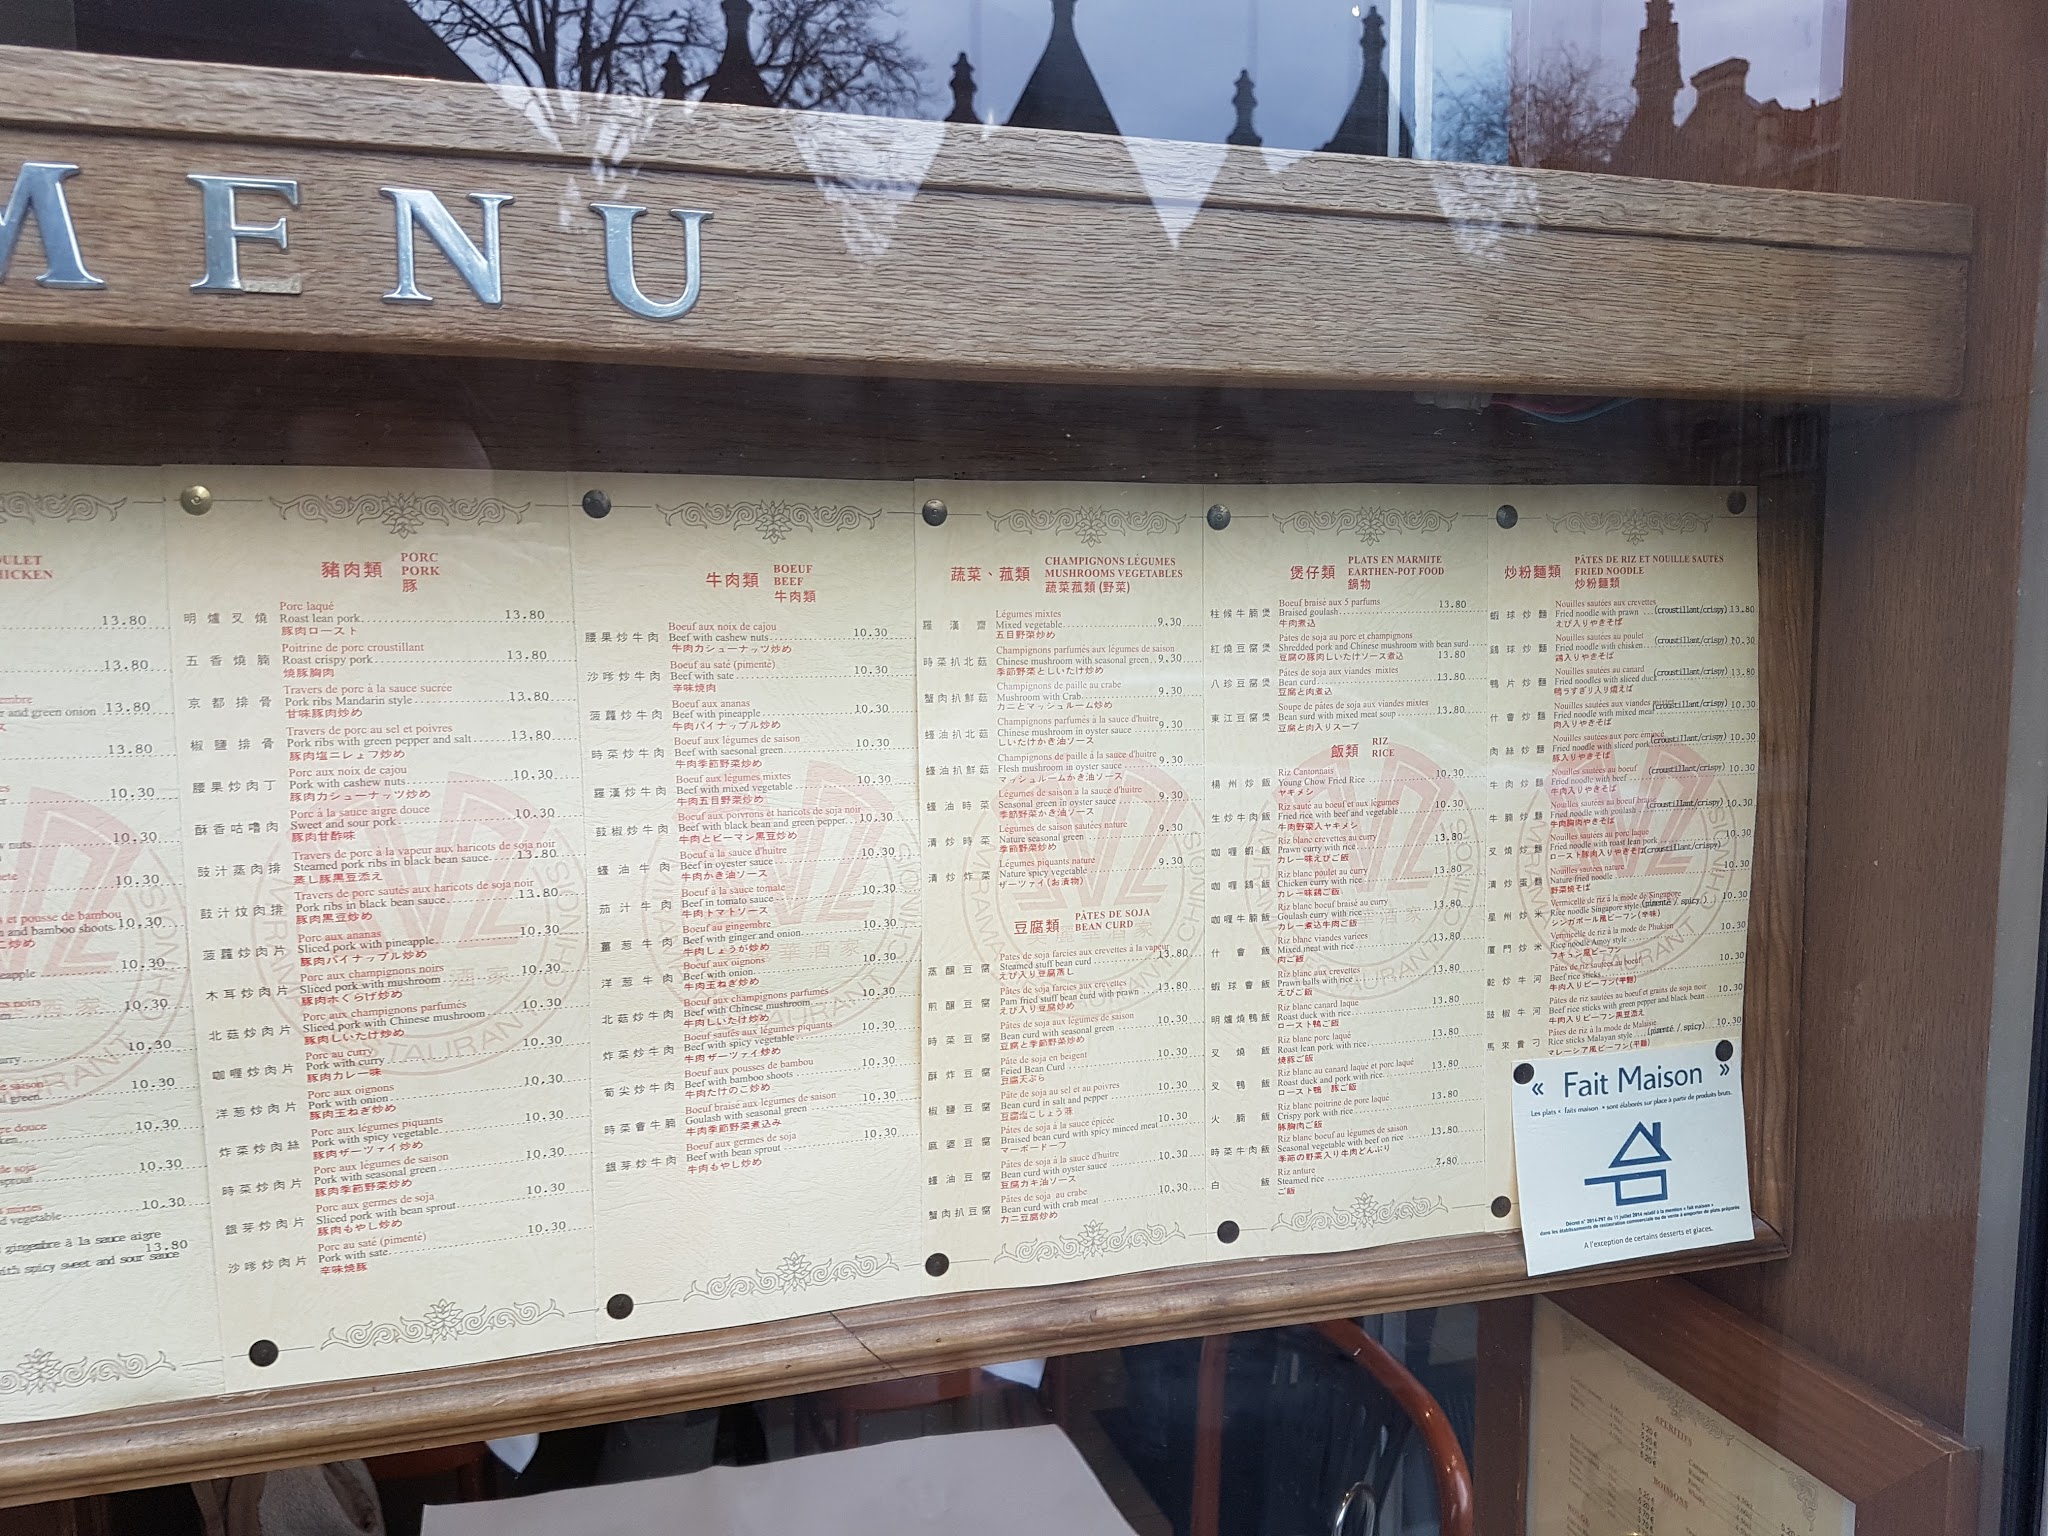 MENU
OULET
HICKEN
13.80
13.80
and green onion 13.80
13.80
10.30
10.30
10.30
et pousse de bambou
and bamboo shoots 10.30
10.30
10.30
10.30
10.30
10.30
10.30
10.30
gingembre à la sauce aigre
13.80
with spicy sweet and sour sauce
豬肉類
PORC
PORK
豚
Porc laqué
明爐叉燒 Roast lean pork 13.80
豚肉ロースト
Poitrine de porc croustillant
五香燒腩 Roast crispy pork 13.80
焼豚胸肉
Travers de porc à la sauce sucrée
京都排骨 Pork ribs Mandarin style 13.80
甘味豚肉炒め
Travers de porc au sel et poivres
椒鹽排骨 Pork ribs with green pepper and salt 13.80
豚肉塩ニレょフ炒め
Porc aux noix de cajou
腰果炒肉丁 Pork with cashew nuts 10.30
豚肉カシューナッツ炒め
Porc à la sauce aigre douce
酥香咕嚕肉 Sweet and sour pork 10.30
豚肉甘酢味
Travers de porc à la vapeur aux haricots de soja noir
豉汁蒸肉排 Steamed pork ribs in black bean sauce 13.80
蒸し豚黒豆添え
Travers de porc sautés aux haricots de soja noir
豉汁炆肉排 Pork ribs in black bean sauce 13.80
豚肉黒豆炒め
Porc aux ananas
菠蘿炒肉片 Sliced pork with pineapple 10.30
豚肉パイナップル炒め
Porc aux champignons noirs
木耳炒肉片 Sliced pork with mushroom 10.30
豚肉ホくらげ炒め
Porc aux champignons parfumés
北菇炒肉片 Sliced pork with Chinese mushroom 10.30
豚肉しいたけ炒め
Porc au curry
咖喱炒肉片 Pork with curry 10.30
豚肉カレー味
Porc aux oignons
洋葱炒肉片 Pork with onion 10.30
豚肉玉ねぎ炒め
Porc aux légumes piquants
炸菜炒肉絲 Pork with spicy vegetable 10.30
豚肉ザーツァイ炒め
Porc aux légumes de saison
時菜炒肉片 Pork with seasonal green 10.30
豚肉季節野菜炒め
Porc aux germes de soja
銀芽炒肉片 Sliced pork with bean sprout 10.30
豚肉もやし炒め
Porc au saté (pimenté)
沙嗲炒肉片 Pork with sate 10.30
辛味焼豚
牛肉類
BOEUF
BEEF
牛肉類
Boeuf aux noix de cajou
腰果炒牛肉 Beef with cashew nuts 10.30
牛肉カシューナッツ炒め
Boeuf au saté (pimenté)
沙嗲炒牛肉 Beef with sate 10.30
辛味焼肉
Boeuf aux ananas
菠蘿炒牛肉 Beef with pineapple 10.30
牛肉パイナップル炒め
Boeuf aux légumes de saison
時菜炒牛肉 Beef with saesonal green 10.30
牛肉季節野菜炒め
Boeuf aux légumes mixtes
羅漢炒牛肉 Beef with mixed vegetable 10.30
牛肉五目野菜炒め
Boeuf aux poivrons et haricots de soja noir
豉椒炒牛肉 Beef with black bean and green pepper 10.30
牛肉とピーマン黒豆炒め
Boeuf à la sauce d'huitre
蠔油牛肉 Beef in oyester sauce 10.30
牛肉かき油ソース
Boeuf à la sauce tomate
茄汁牛肉 Beef in tomato sauce 10.30
牛肉トマトソース
Boeuf au gingembre
薑葱牛肉 Beef with ginger and onion 10.30
牛肉しょうが炒め
Boeuf aux oignons
洋葱牛肉 Beef with onion 10.30
牛肉玉ねぎ炒め
Boeuf aux champignons parfumés
北菇炒牛肉 Beef with Chinese mushroom 10.30
牛肉しいたけ炒め
Boeuf sautés aux légumes piquants
炸菜炒牛肉 Beef with spicy vegetable 10.30
牛肉ザーツァイ炒め
Boeuf aux pousses de bambou
荀尖炒牛肉 Beef with bamboo shoots 10.30
牛肉たけのこ炒め
Boeuf braisé aux légumes de saison
時菜會牛腩 Goulash with seasonal green 10.30
牛肉季節野菜煮込み
Boeuf aux germes de soja
銀芽炒牛肉 Beef with bean sprout 10.30
牛肉もやし炒め
蔬菜、菰類
CHAMPIGNONS LÉGUMES
MUSHROOMS VEGETABLES
蔬菜菰類 (野菜)
Légumes mixtes
羅漢齋 Mixed vegetable 9.30
五目野菜炒め
Champignons parfumés aux légumes de saison
時菜扒北菇 Chinese mushroom with seasonal green 9.30
季節野菜としいたけ炒め
Champignons de paille au crabe
蟹肉扒鮮菇 Mushroom with Crab 9.30
カニとマッシュルーム炒め
Champignons parfumés à la sauce d'huitre
蠔油扒北菇 Chinese mushroom in oyster sauce 9.30
しいたけかき油ソース
Champignons de paille à la sauce d'huitre
蠔油扒鮮菇 Flesh mushroom in oyster sauce 9.30
マッシュルームかき油ソース
Légumes de saison à la sauce d'huitre
蠔油時菜 Seasonal green in oyster sauce 9.30
季節野菜かき油ソース
Légumes de saison sautées nature
清炒時菜 Nature seasonal green 9.30
季節野菜炒め
Légumes piquants nature
清炒炸菜 Nature spicy vegetable 9.30
ザーツァイ(お漬物)
豆腐類
PÂTES DE SOJA
BEAN CURD
Pâtes de soja farcies aux crevettes à la vapeur
蒸釀豆腐 Steamed stuff bean curd 13.80
えび入り豆腐蒸し
Pâtes de soja farcies aux crevettes
煎釀豆腐 Pam fried stuff bean curd with prawn 13.80
えび入り豆腐炒め
Pâtes de soja aux légumes de saison
時菜豆腐 Bean curd with seasonal green 10.30
豆腐と季節野菜炒め
Pâte de soja en beigent
酥炸豆腐 Feied Bean Curd 10.30
豆腐天ぷら
Pâtes de soja au sel et au poivres
椒鹽豆腐 Bean curd in salt and pepper 10.30
豆腐塩こしょう味
Pâtes de soja à la sauce épicée
麻婆豆腐 Braised bean curd with spicy minced meat 10.30
マーボードーフ
Pâtes de soja à la sauce d'huitre
蠔油豆腐 Bean curd with oyster sauce 10.30
豆腐カキ油ソース
Pâtes de soja au crabe
蟹肉扒豆腐 Bean curd with crab meat 10.30
カニ豆腐炒め
煲仔類
PLATS EN MARMITE
EARTHEN-POT FOOD
鍋物
Boeuf braisé aux 5 parfums
柱候牛腩煲 Braised goulash 13.80
牛肉煮込
Pâtes de soja au porc et champignons
紅燒豆腐煲 Shredded pork and Chinese mushroom with bean surd
豆腐の豚肉しいたけソース煮込 13.80
Pâtes de soja aux viandes mixtes
八珍豆腐煲 Bean curd 13.80
豆腐と肉煮込
Soupe de pâtes de soja aux viandes mixtes
東江豆腐煲 Bean surd with mixed meat soup 13.80
豆腐と肉入りスープ
飯類
RIZ
RICE
Riz Cantonnais
楊州炒飯 Young Chow Fried Rice 10.30
ヤキメシ
Riz sauté au boeuf et aux légumes
生炒牛肉飯 Fried rice with beef and vegetable 10.30
牛肉野菜入ヤキメシ
Riz blanc crevettes au curry
咖喱蝦飯 Prawn curry with rice 13.80
カレー味えびご飯
Riz blanc poulet au curry
咖喱鷄飯 Chicken curry with rice 13.80
カレー味鶏ご飯
Riz blanc boeuf braisé au curry
咖喱牛腩飯 Goulash curry with rice 13.80
カレー煮込牛肉ご飯
Riz blanc viandes variées
什會飯 Mixed meat with rice 13.80
肉ご飯
Riz blanc aux crevettes
蝦球會飯 Prawn balls with rice 13.80
えびご飯
Riz blanc canard laque
明爐燒鴨飯 Roast duck with rice 13.80
ロースト鴨ご飯
Riz blanc porc laqué
叉燒飯 Roast lean pork with rice 13.80
焼豚ご飯
Riz blanc au canard laqué et porc laqué
叉鴨飯 Roast duck and pork with rice 13.80
ロースト鴨 豚ご飯
Riz blanc poitrine de porc laqué
火腩飯 Crispy pork with rice 13.80
豚胸肉ご飯
Riz blanc boeuf au légumes de saison
時菜牛肉飯 Seasonal vegetable with beef on rice 13.80
季節の野菜入り牛肉どんぶり
Riz anture
白飯 Steamed rice 2.80
ご飯
炒粉麵類
PÂTES DE RIZ ET NOUILLE SAUTÉS
FRIED NOODLE
炒粉麵類
Nouilles sautées aux crevettes
蝦球炒麵 Fried noodle with prawn (croustillant/crispy) 13.80
えび入りやきそば
Nouilles sautées au poulet
鷄球炒麵 Fried noodle with chisken (croustillant/crispy) 10.30
鶏入りやきそば
Nouilles sautées au canard
鴨片炒麵 Fried noodles with sliced duck (croustillant/crispy) 13.80
鴨うすぎり入り焼えば
Nouilles sautées aux viandes
什會炒麵 Fried noodle with mixed meat (croustillant/crispy) 10.30
肉入りやきそば
Nouilles sautées aux porc émincé
肉絲炒麵 Fried noodle with sliced pork (croustillant/crispy) 10.30
豚入りやきそば
Nouilles sautées au boeuf
牛肉炒麵 Fried noodle with beef (croustillant/crispy) 10.30
牛肉入りやきそば
Nouilles sautées au boeuf braisé
牛腩炒麵 Fried noodle with goulash (croustillant/crispy) 10.30
牛肉胸肉やきそば
Nouilles sautées au porc laqué
叉燒炒麵 Fried noodle with roast lean pork 10.30
ロースト豚肉入りやきそば (croustillant/crispy)
Nouilles sautées nature
清炒蛋麵 Fried noodle 10.30
野菜焼そば
Vermicelle de riz à la mode de Singapore
星州炒米 Rice noodle Singapore style (pimenté / spicy) 10.30
シンガポール風ビーフン(辛味)
Vermicelle de riz à la mode de Phukien
廈門炒米 Rice noodle Amoy style 10.30
フキュン風ビーフン
Pâtes de riz sautées au boeuf
乾炒牛河 Beef rice sticks 10.30
牛肉入りビーフン(平麵)
Pâtes de riz sautées au boeuf et grains de soja noir
豉椒牛河 Beef rice sticks with green pepper and black bean 10.30
牛肉入りビーフン黒豆添え
Pâtes de riz à la mode de Malaisie
馬來貴刁 Rice sticks Malayan style (pimenté / spicy) 10.30
マレーシア風ビーフン(平麵)
« Fait Maison »
Les plats « faits maison » sont élaborés sur place à partir de produits bruts.
Décret n° 2014-797 du 11 juillet 2014 relatif à la mention « fait maison »
dans les établissements de restauration commerciale ou de vente à emporter de plats préparés
A l'exception de certains desserts et glaces.
APERITIFS
BOISSONS